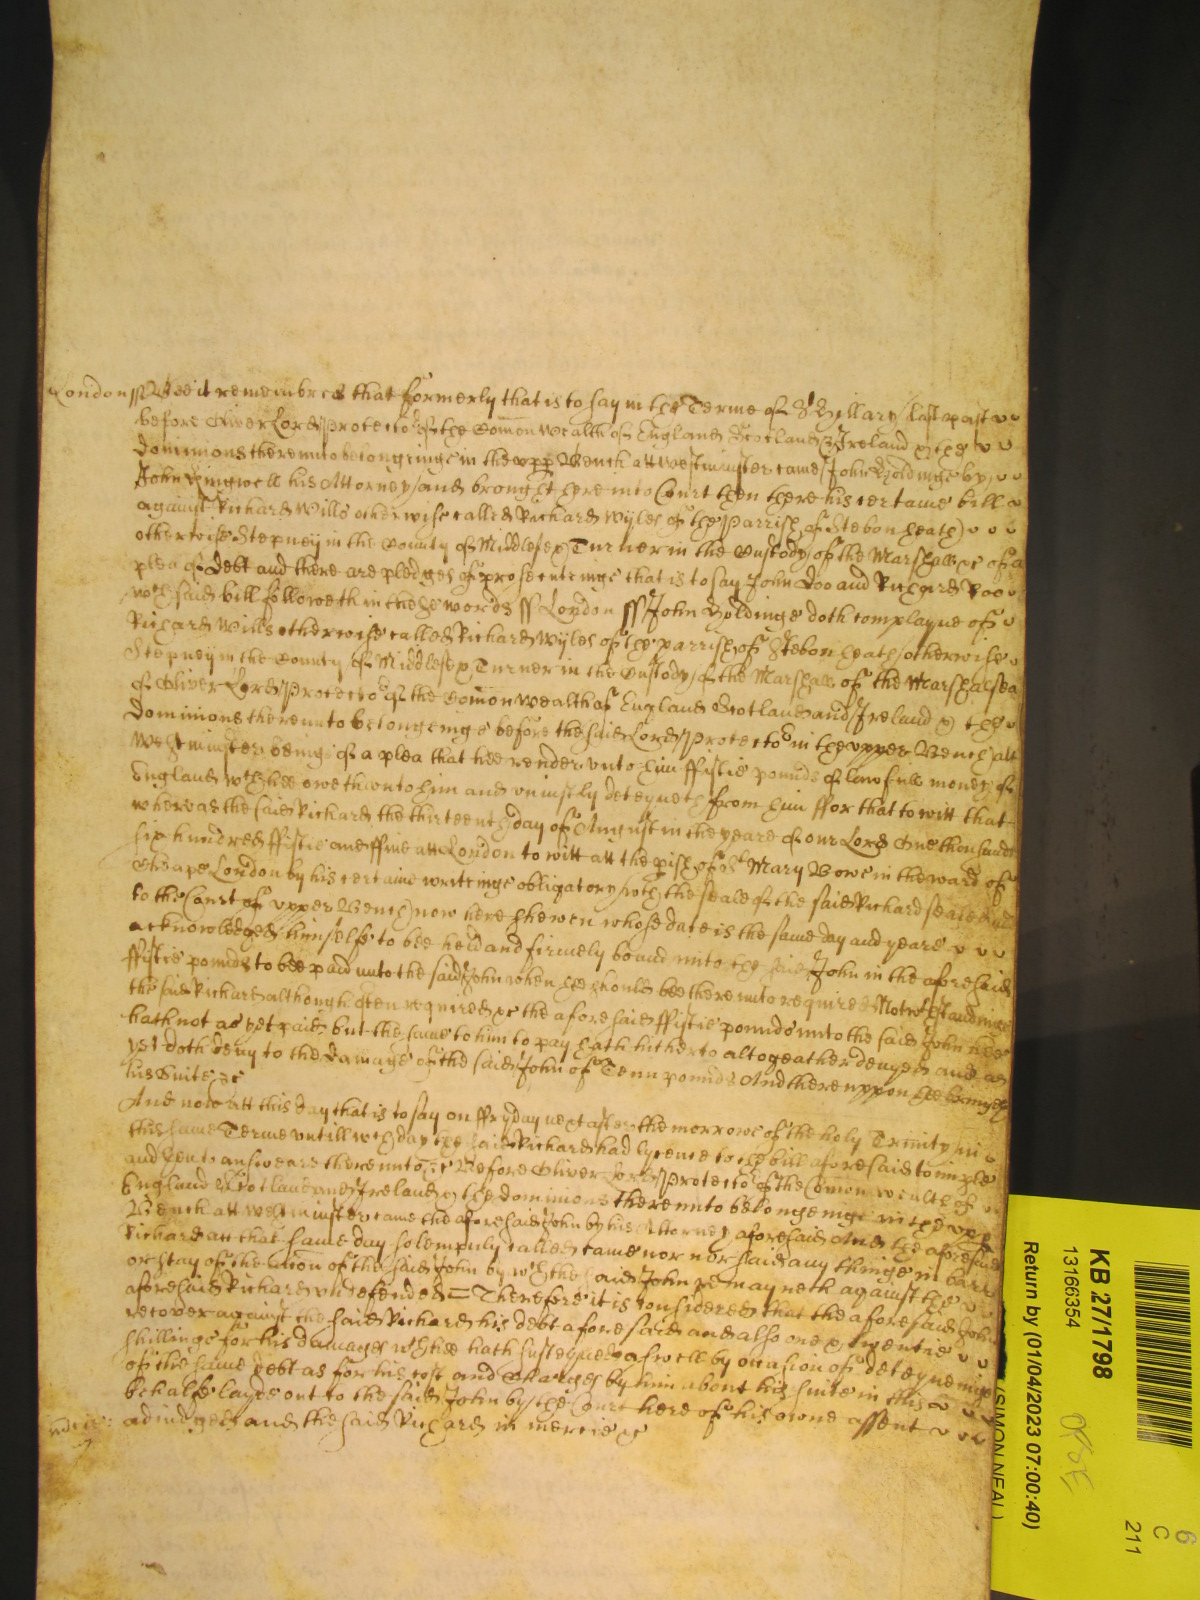 London ss Bee it remembred that formerly that is to say in the Terme of St Hyllary last past
before Oliver Lord Protector of the Comon wealth of England Scotland & Ireland & the
dominions thereunto belongeinge in the upper Bench att Westminster came John Holdinge by
John Ringwell his Attorney and brought here into Court then there his certaine bill
against Richard Wills otherwise called Richard Wyles of the Parrish of Stebonheath
otherwise Stepney in the County of Middlesex Turner in the Custody of the Marshall &c of a
plea of debt and there are pledges of prosecuteinge that is to say John Doo and Richard Roo
wch said bill followeth in these words ss London ss John Holdinge doth complayne of
Richard Wills otherwise called Richard Wyles of the parrish of Stebonheath otherwise
Stepney in the County of Middlesex Turner in the Custody of the Marshall of the Marshalsea
of Oliver Lord Protector of the Comon wealth of England Scotland and Ireland & the
dominions thereunto belongeinge before the said Lord Protector in the upper Bench att
Westminster being of a plea that hee render unto him ffiftie pounds of lawfull money of
England wch hee oweth unto him and uniustly deteyneth from him ffor that to witt that
whereas the said Richard the thirteenth day of August in the yeare of our Lord One thousand
six hundred ffiftie and ffive att London to witt att the pish of St Mary Bowe in the ward of
Cheape London by his certaine writinge obligatory wth the seale of the said Richard sealed and
to the Court of upper Bench now here shewen whose date is the same day and yeare
acknowledged himselfe to bee held and firmely bound unto the said John in the aforesaid
ffiftie pounds to bee paid unto the said John when hee should bee thereunto required Notwthstandinge
the said Richard although often required &c the aforesaid ffiftie pounds unto the said John hee
hath not as yet paid but the same to him to pay hath hitherto altogeather denyed and as
yet doth deny to the damage of the said John of Tenn pounds And thereuppon hee bringeth
his Suite &c
And now att this day that is to say on ffryday next after the morrowe of the holy Trinity in
this same Terme untill wch day the said Richard had lycence to the bill aforesaid to imple
and then to answeare thereunto &c Before Oliver Lord Protector of the Comon wealth of
England Scotland and Ireland & the dominions thereunto belongeinge in the upp
Bench att Westminster came the aforesaid John by his Attorney aforesaid And the aforesaid
Richard att that same day solempnly called came not nor said any thinge in barr
or stay of the accion of the said John by wch the said John remayneth against the
aforesaid Richard undefended = Therefore it is considered that the aforesaid John
recover against the said Richard his debt aforesaid and also one & twentie
shillings for his damages wch hee hath susteyned aswell by occasion of deteyneinge
of the same debt as for his cost and Charges by him about his suite in this
behalfe layed out to the said John by the Court here of his owne assent
adiudged and the said Richard in mercie &c
KB 27/1798
13166354
Return by (01/04/2023 07:00:40)
(SIMON NEAL)
6
C
211